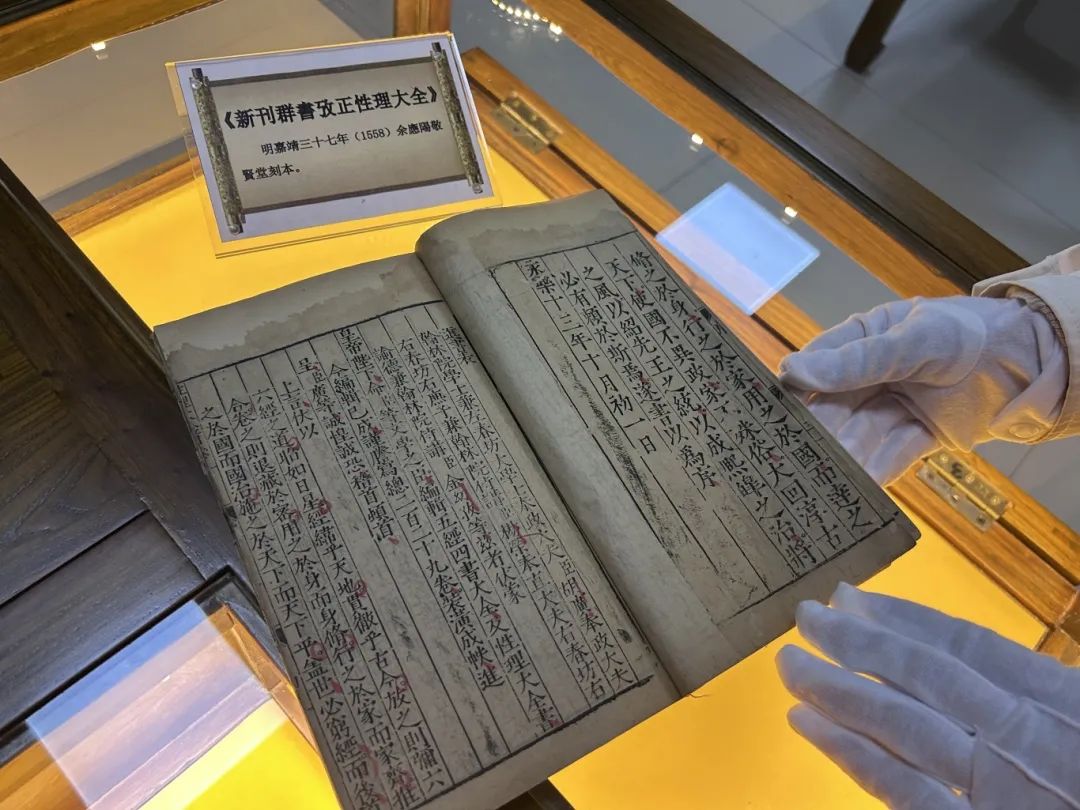 《新刊群書攷正性理大全》
明嘉靖三十七年（1558）余應陽敬
賢堂刻本。
修之於身行之於家用之於國而達之
天下使國不異政家不殊俗大回淳古
之風以紹先王之統以成熙雍之治將
必有頼於斯焉遂書以為序
永樂十三年十月初一日
進書表
翰林院學士兼左春坊大學士奉政大夫臣胡廣奉政大夫
右春坊右庶子兼翰林院侍講臣楊榮奉直大夫右春坊右
諭德兼翰林院侍講臣金幼孜等
皇帝陛下命文學之臣編輯五經四書大全及性理大全書
今編輯已成謹謄寫總二百二十九卷裝潢成帙進
呈臣廣等誠惶誠恐稽首頓首
上言伏以
六經之道如日星經緯乎天地貫徹乎古今放之則彌六
合卷之則退藏於密用之於身而身脩行之於家而家齊推
之於國而國治達之於天下而天下平盖世必窮經而後